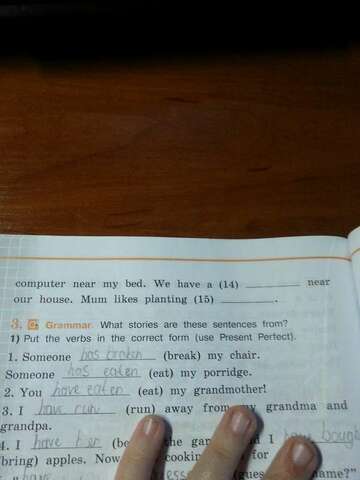 computer near my bed. We have a (14) ________ near
our house. Mum likes planting (15) ________.
3. G Grammar. What stories are these sentences from?
1) Put the verbs in the correct form (use Present Perfect).
1. Someone has broken (break) my chair.
Someone has eaten (eat) my porridge.
2. You have eaten (eat) my grandmother!
3. I have run (run) away from my grandma and
grandpa.
4. I have (be the I have
(bring) apples. Now cooking for
have (guess name?"